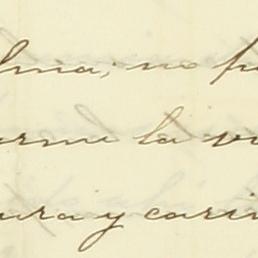 lma; no p
arme la vi
ura y cari